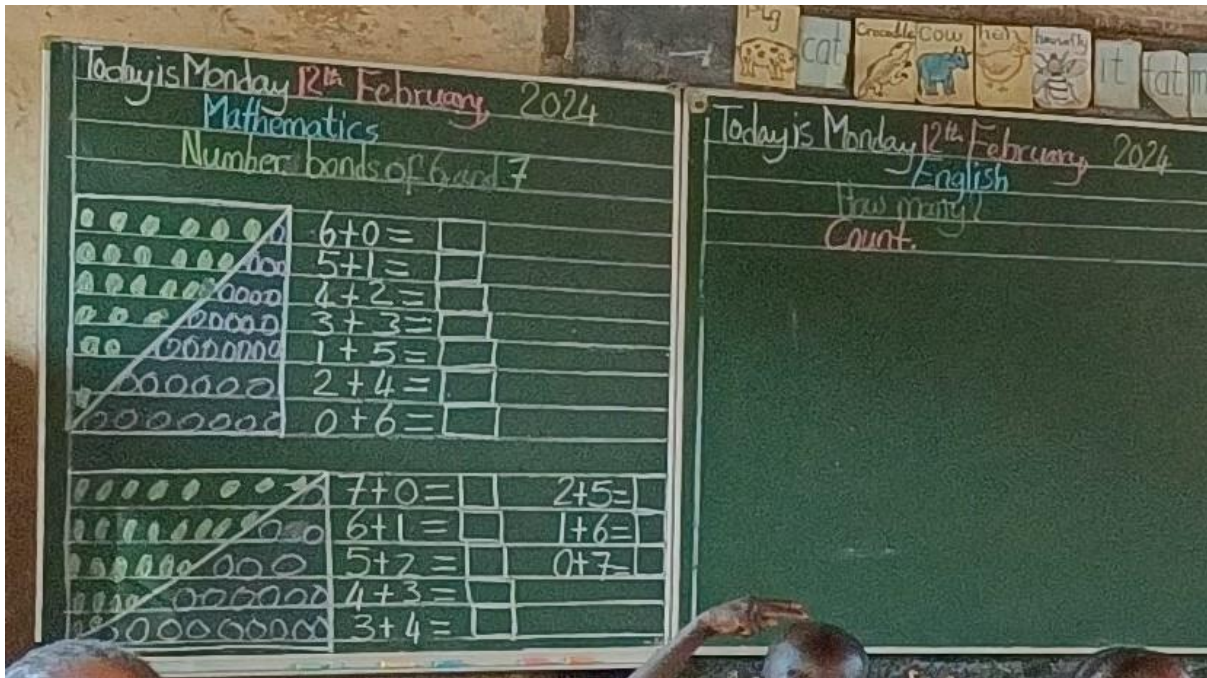 Pig
cat
Crocodile
cow
hen
it
fat
Today is Monday 12th February 2024
Mathematics
Number bonds of 6 and 7
6+0=
5+1=
4+2=
3+3=
1+5=
2+4=
0+6=
7+0= 2+5=
6+1= 1+6=
5+2= 0+7=
4+3=
3+4=
Today is Monday 12th February 2024
English
How many?
Count.